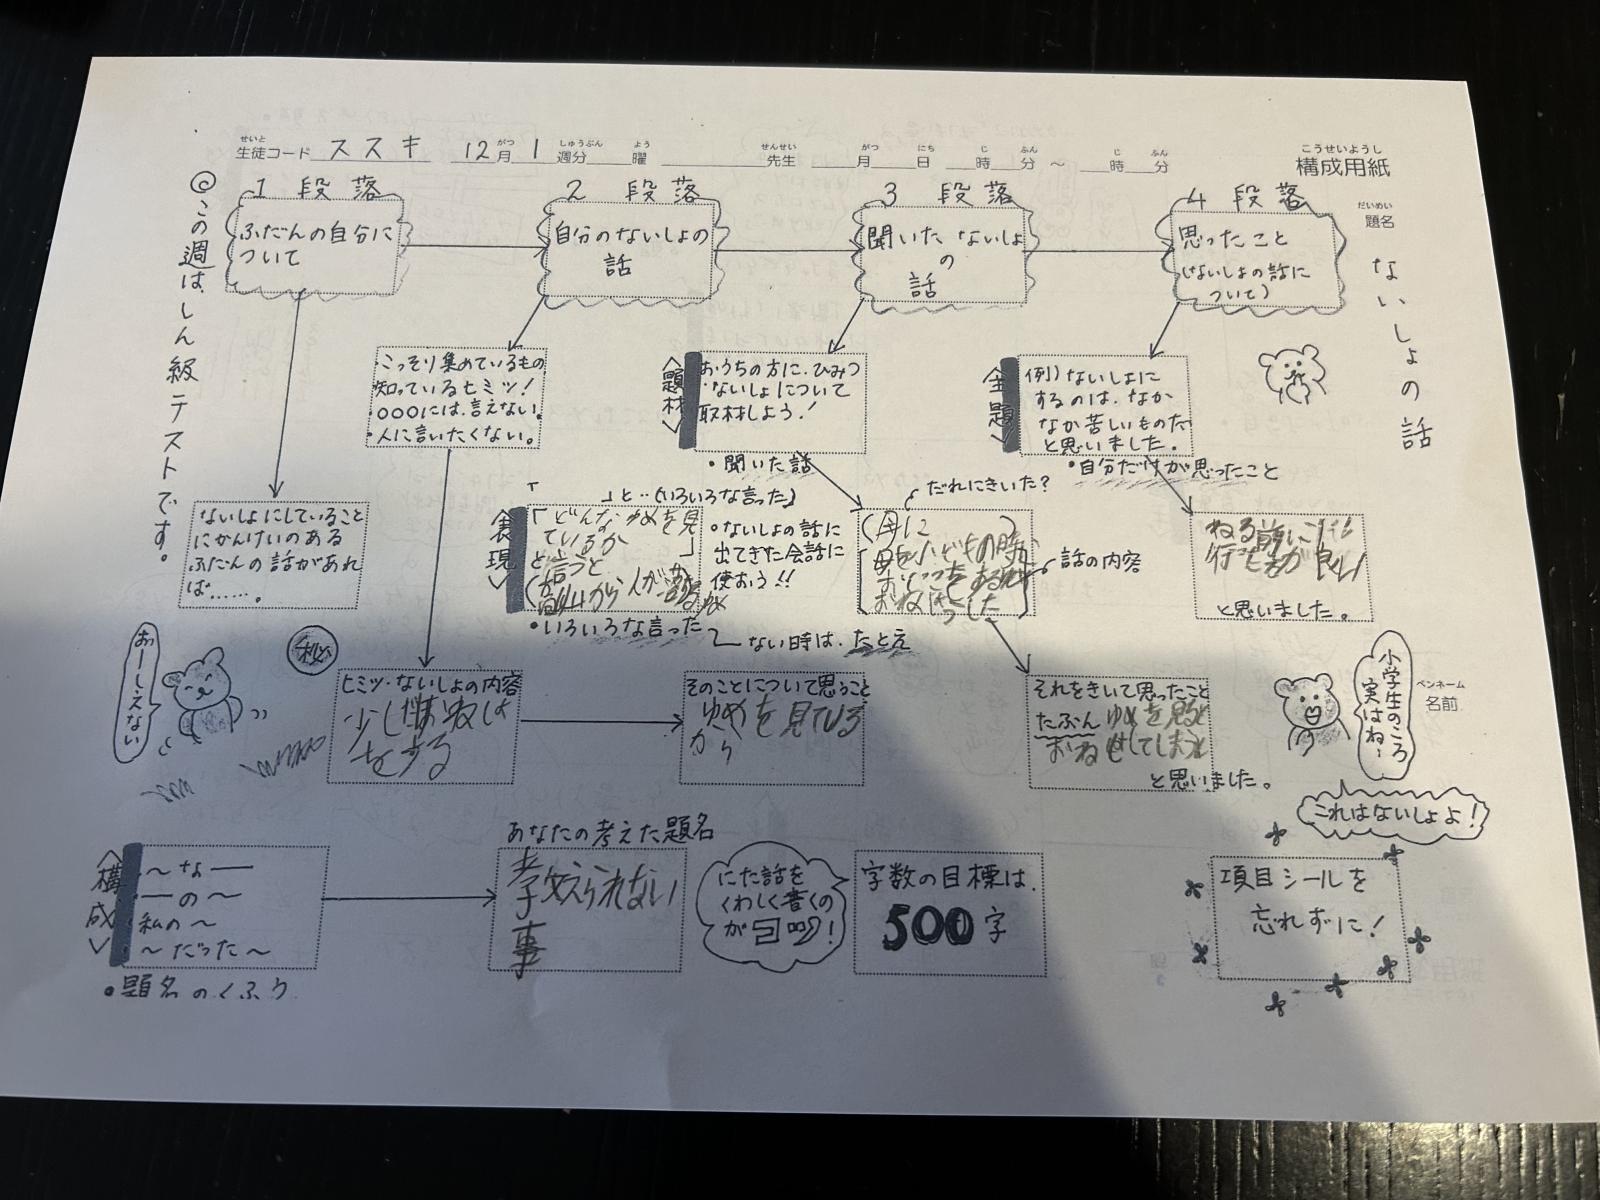 せいと
生徒コード ススキ 12月 1週分 曜 先生 月 日 時 分 ～ 時 分
がつ しゅうぶん よう せんせい がつ にち じ ふん じ ふん
こうせいようし
構成用紙
だいめい
題名
ないしょの話
ペンネーム
名前
◎この週は、しん級テストです。
1段落
ふだんの自分に
ついて
2段落
自分のないしょの
話
3段落
聞いたないしょ
の
話
4段落
思ったこと
(ないしょの話に
ついて)
・こっそり集めているもの
知っているヒミツ！
・○○○には、言えない。
・人に言いたくない。
〈題材〉
おうちの方に、ひみつ
・ないしょについて
取材しよう！
・聞いた話
〈主題〉
例）ないしょに
するのは、なか
なか苦しいものだ
と思いました。
・自分だけが思ったこと
ないしょにしていること
にかんけいのある
ふだんの話があれ
ば……。
「　　　」と‥(いろいろな言った)
〈表現〉
「どんなゆめを見
ているか
」
と言うと
から人が
・いろいろな言った
・ないしょの話に
出てきた会話に
使おう！！
ない時は、たとえ
だれにきいた？
(母に　　　)
子どもの時
おねしょ
した
話の内容
ねる前に
行く方が良い
と思いました。
おーしえない
秘
ヒミツ・ないしょの内容
少し
をする
そのことについて思うこと
ゆめを見ている
から
それをきいて思ったこと
たぶんゆめを見ると
おね
してしまう
と思いました。
小学生のころ
実はね～
これはないしょよ！
〈構成〉
～な―
―の～
私の～
～だった～
・題名のくふう
あなたの考えた題名
教えられない
事
にた話を
くわしく書くの
がコツ！
字数の目標は、
500字
項目シールを
忘れずに！